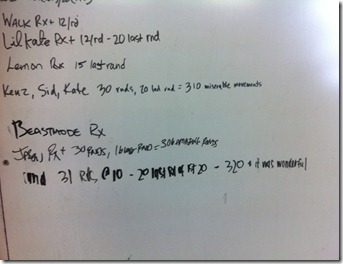 WALK Rx + 12/rd
Lil Kate Rx + 12/rd - 20 last rnd
Lemon Rx 15 last round
Kenz, Sid, Kate 30 rnds, 20 last rnd = 310 miserable movements
BEASTMODE Rx
Rx + 30 RNDS, 16 last RND = 306
31 @ 10 - 20 last 20 - 320 & it was wonderful